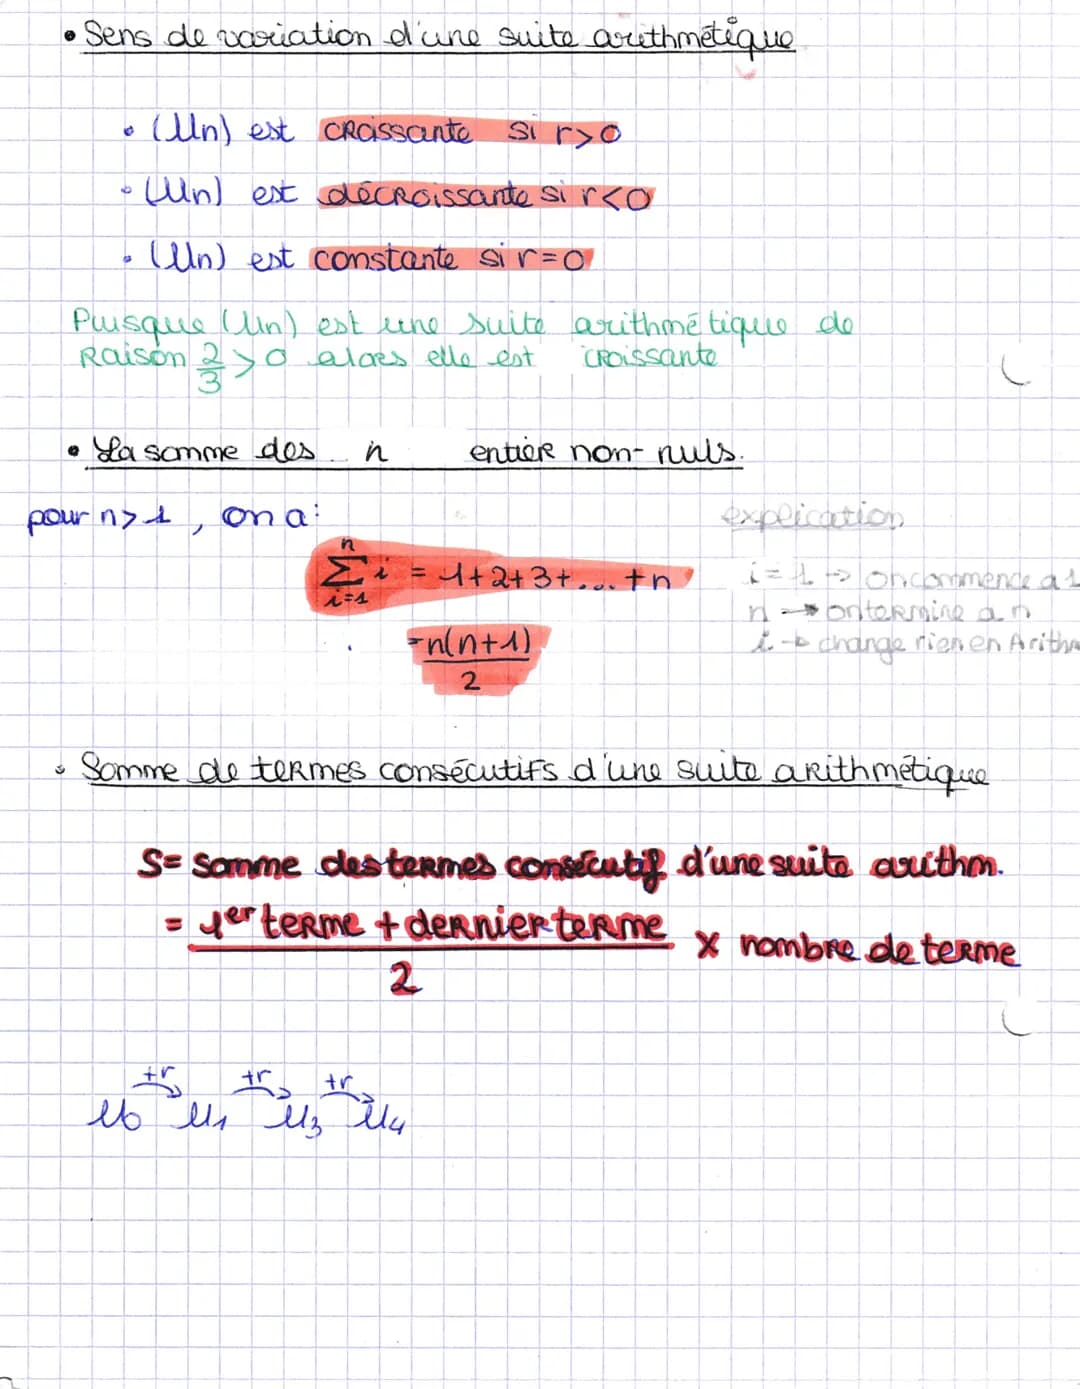 • Sens de variation d'une suite arithmétique
• (Un) est croissante si r>0
• (Un) est décroissante si r<0
• (Un) est constante si r=0
Puisque (Un) est une suite arithmétique de
Raison 2/3 >0 alors elle est croissante
• La somme des n entier non-nuls.
pour n>1, on a:
explication
n
∑ i = 1+2+3+... +n
i=1
i=1 → on commence a 1
n → on termine a n
i → change rien en Arithm
=n(n+1)
2
• Somme de termes consécutifs d'une suite arithmétique
S= Somme des termes consécutif d'une suite arithm.
= 1er terme + dernier terme
x nombre de terme
2
+r +r +r
u0 u1 u3 u4